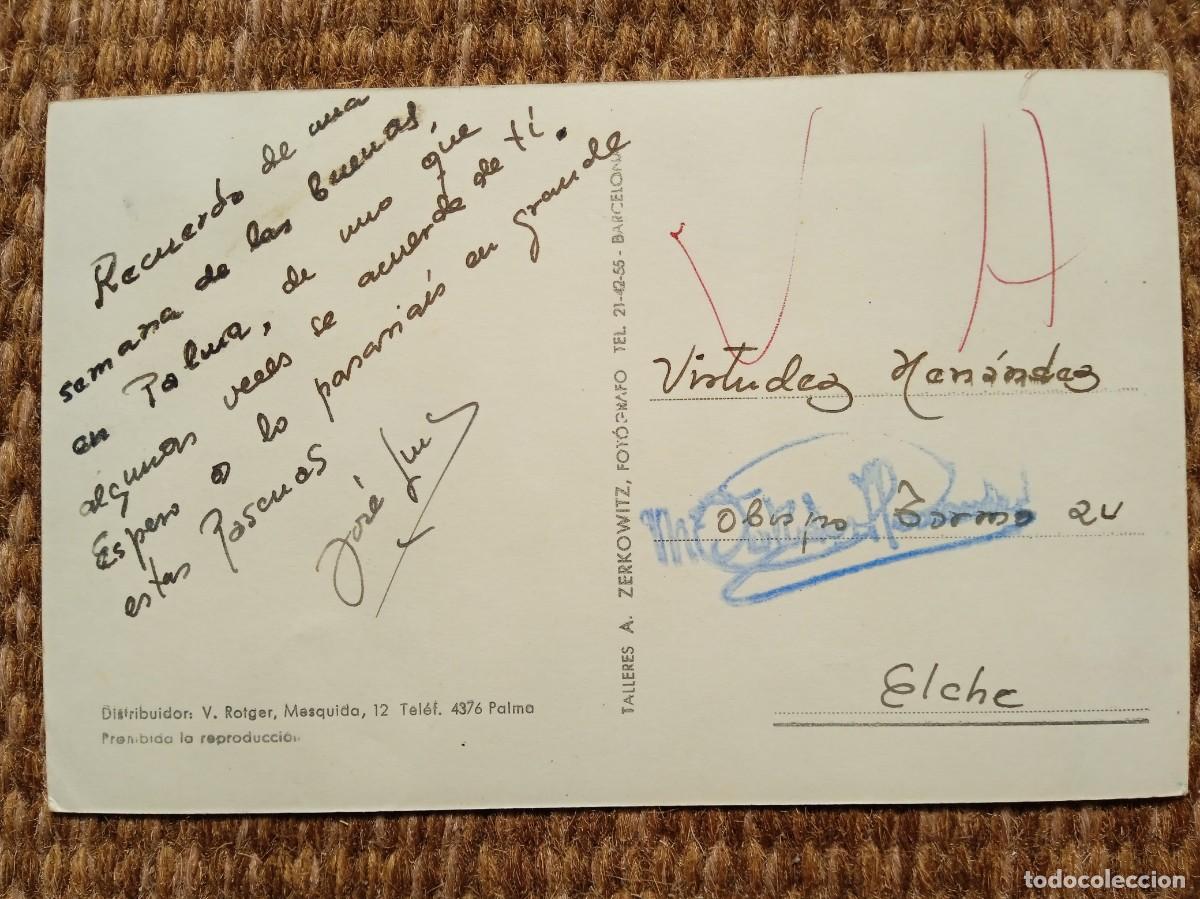 Recuerdo de una
semana de las buenas,
en Palma, de uno que
algunas veces se acuerda de ti.
Espero a lo pasariais en grande
estas Pascuas
José Luis
Distribuidor: V. Rotger, Mesquida, 12 Teléf. 4376 Palma
Prohibida la reproducción
TALLERES A. ZERKOWITZ, FOTÓGRAFO TEL. 21-42-55 - BARCELONA
V H
Virtudez Henández
Obispo Tormo 24
Elche
todocoleccion